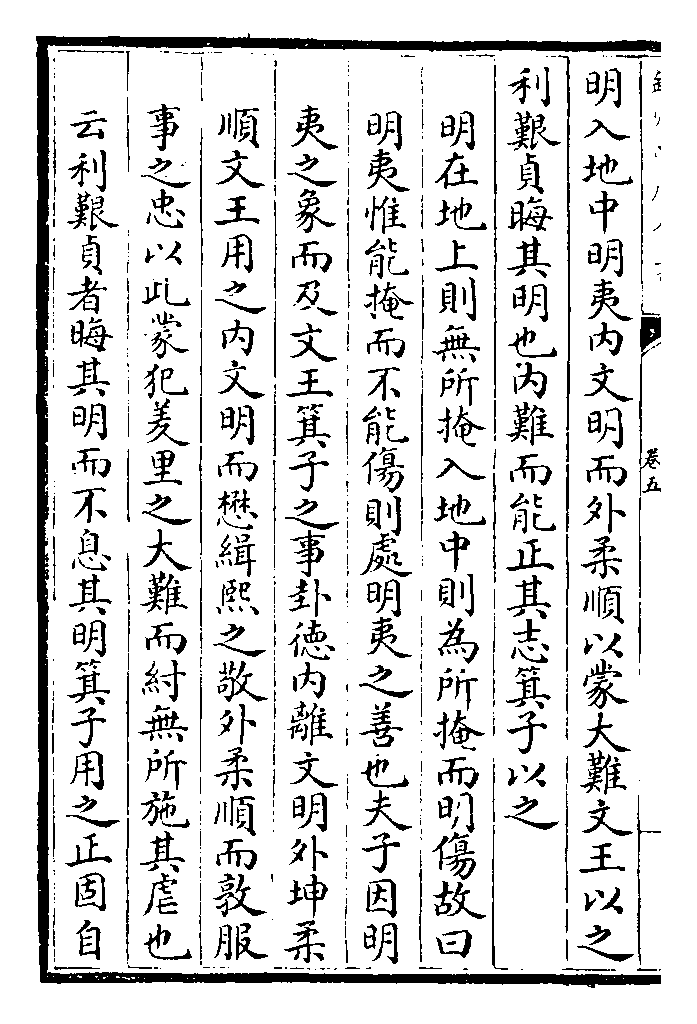 明入地中明夷内文明而外柔順以蒙大難文王以之
利艱貞晦其明也内難而能正其志箕子以之
明在地上則無所掩入地中則為所掩而明傷故曰
明夷惟能掩而不能傷則處明夷之善也夫子因明
夷之象而及文王箕子之事卦徳内離文明外坤柔
順文王用之内文明而懋緝熙之敬外柔順而敦服
事之忠以此蒙犯羑里之大難而紂無所施其虐也
云利艱貞者晦其明而不息其明箕子用之正固自
卷五